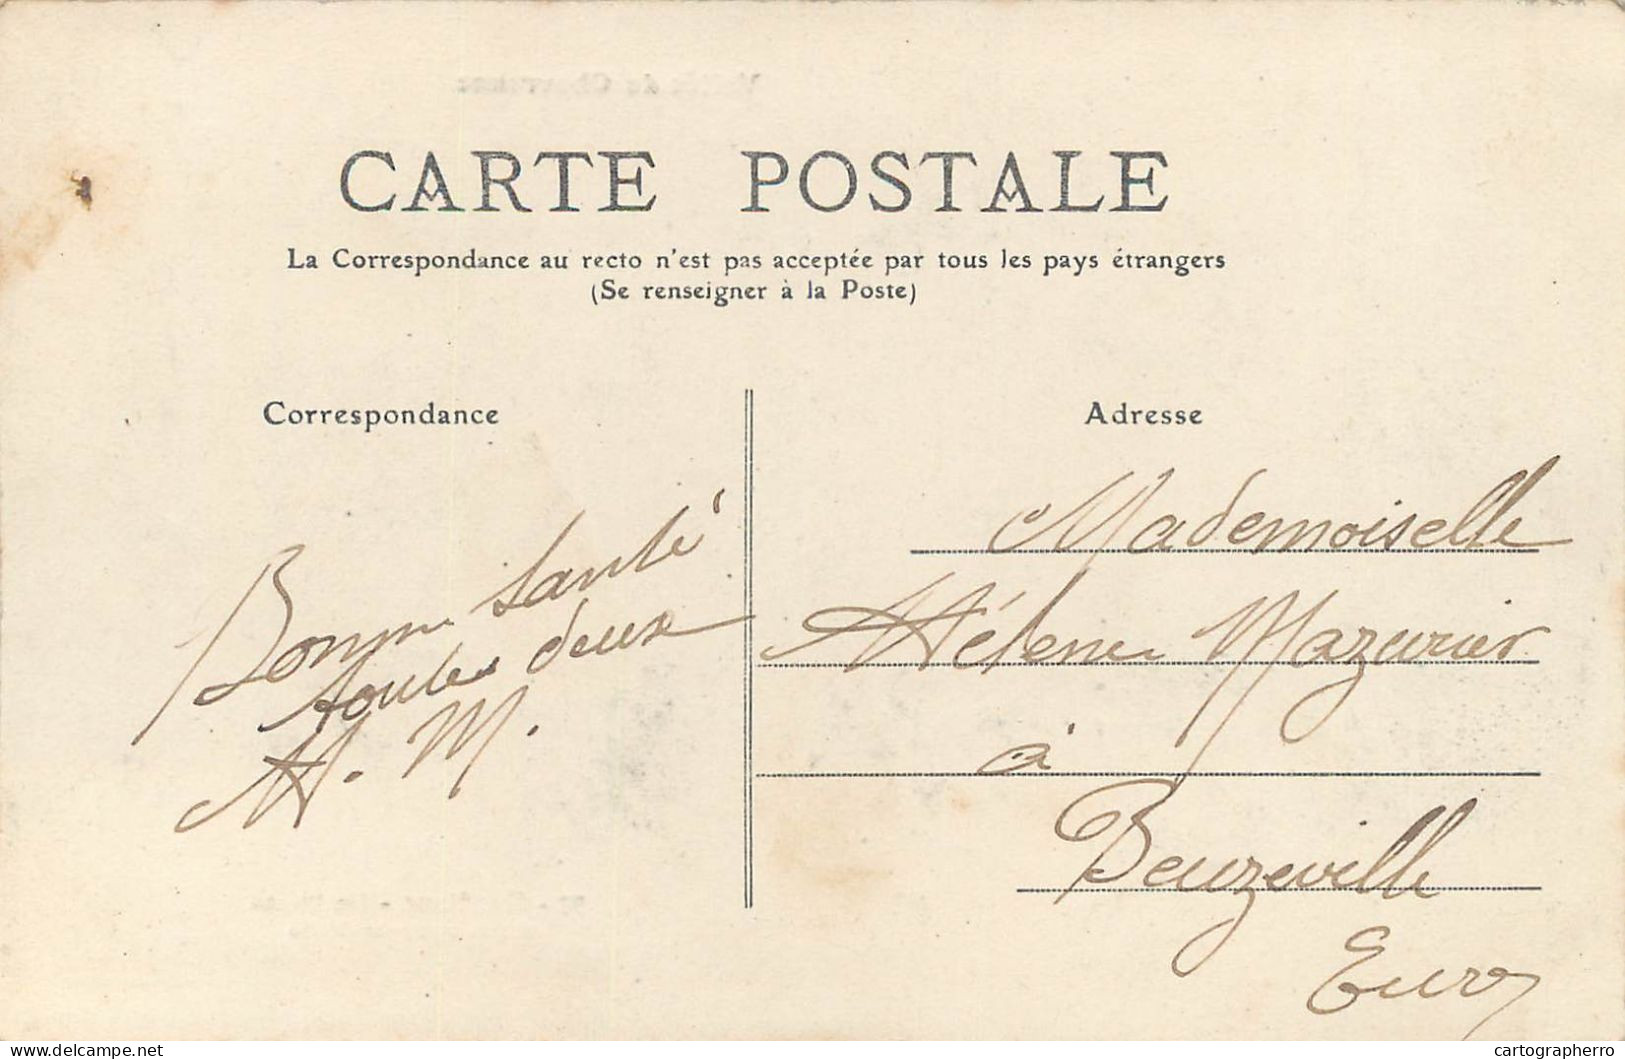 CARTE POSTALE
La Correspondance au recto n'est pas acceptée par tous les pays étrangers
(Se renseigner à la Poste)
Correspondance
Bonne Santé
toutes deux
H. M.
Adresse
Mademoiselle
Hélène Mazurier
à
Beuzeville
Eure
delcampe.net
cartographerro